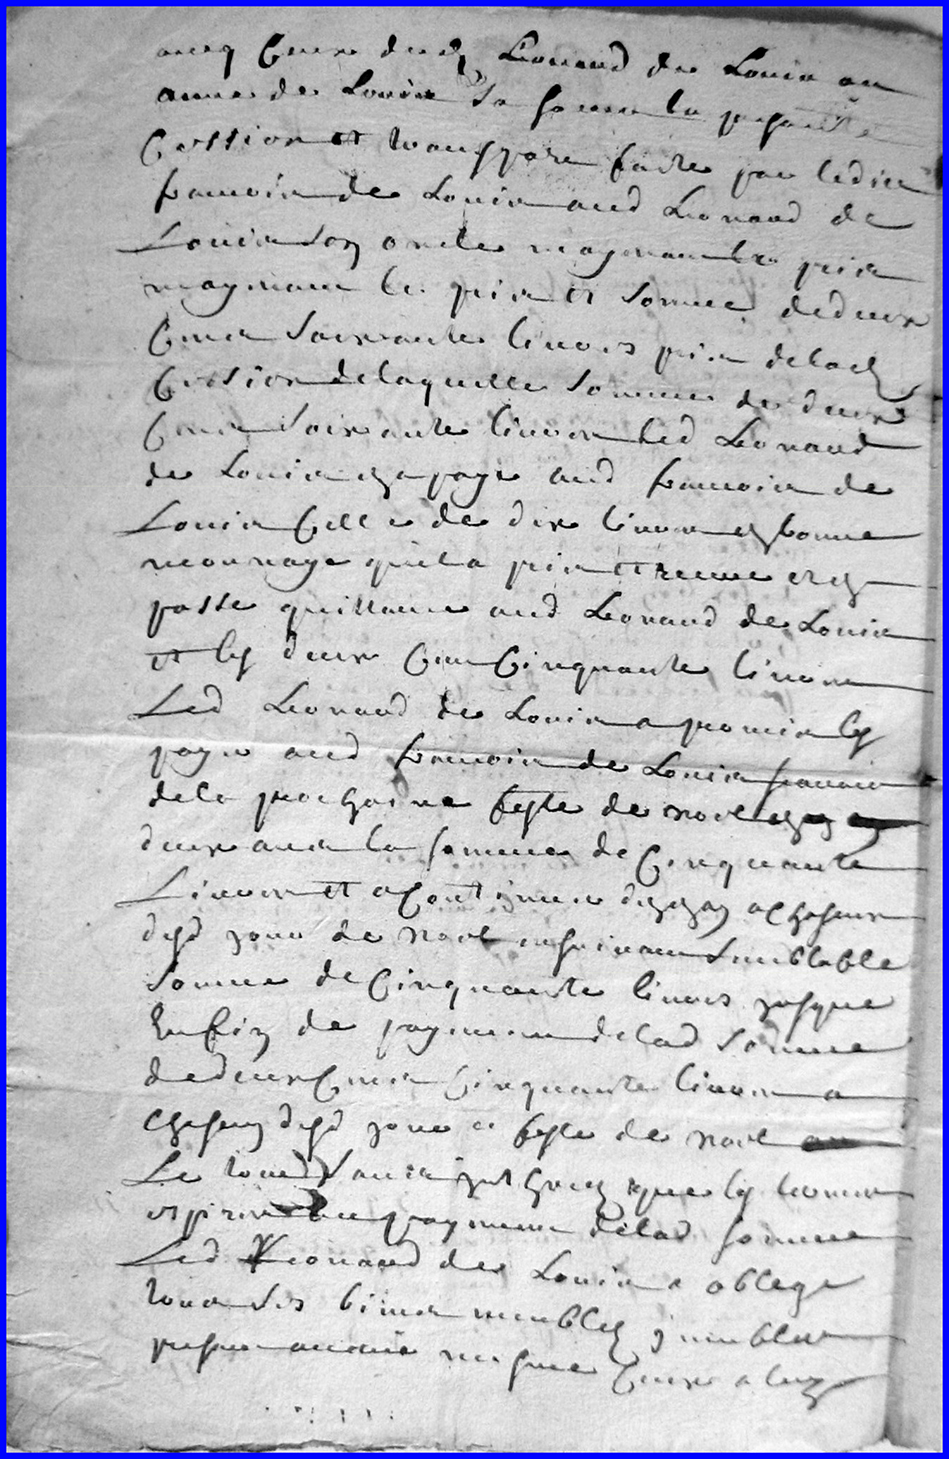 avecq ceux dud Leonard de Louis ou
anne de Louis Sa femme la presante
Cession et transport faite par ledit
francois de Louis aud Leonard de
Louis Son oncle moyenant le prix
moyenant le prix et Somme dedeux
Cens Soixante livres prix delad
Cession delaquelle Somme de deux
Cens Soixante livres led Leonard
de Louis a paye aud francois de
Louis Celle de dix livres en bonne
monnoye quil a prix et receue et en
passe quittance aud Leonard de Louis
et les deux Cens Cinquante livres
Led Leonard de Louis a promis les
payer aud francois de Louis scavoir
dela prochaine feste de noel en
deux ans la somme de Cinquante
Livres et a Continuer dan an a chascun
desd jour de Noel ensuivant Semblable
Somme de Cinquante livres jusque
en fin de payement delad Somme
dedeux Cens Cinquante livres a
Chascun desd jour et feste de noel
Le tout Sans que les termes
et payement delad somme
Led Leonard de Louis a oblege
tous Ses biens meubles jmeubles
presens advenir mesme Ceux a luy